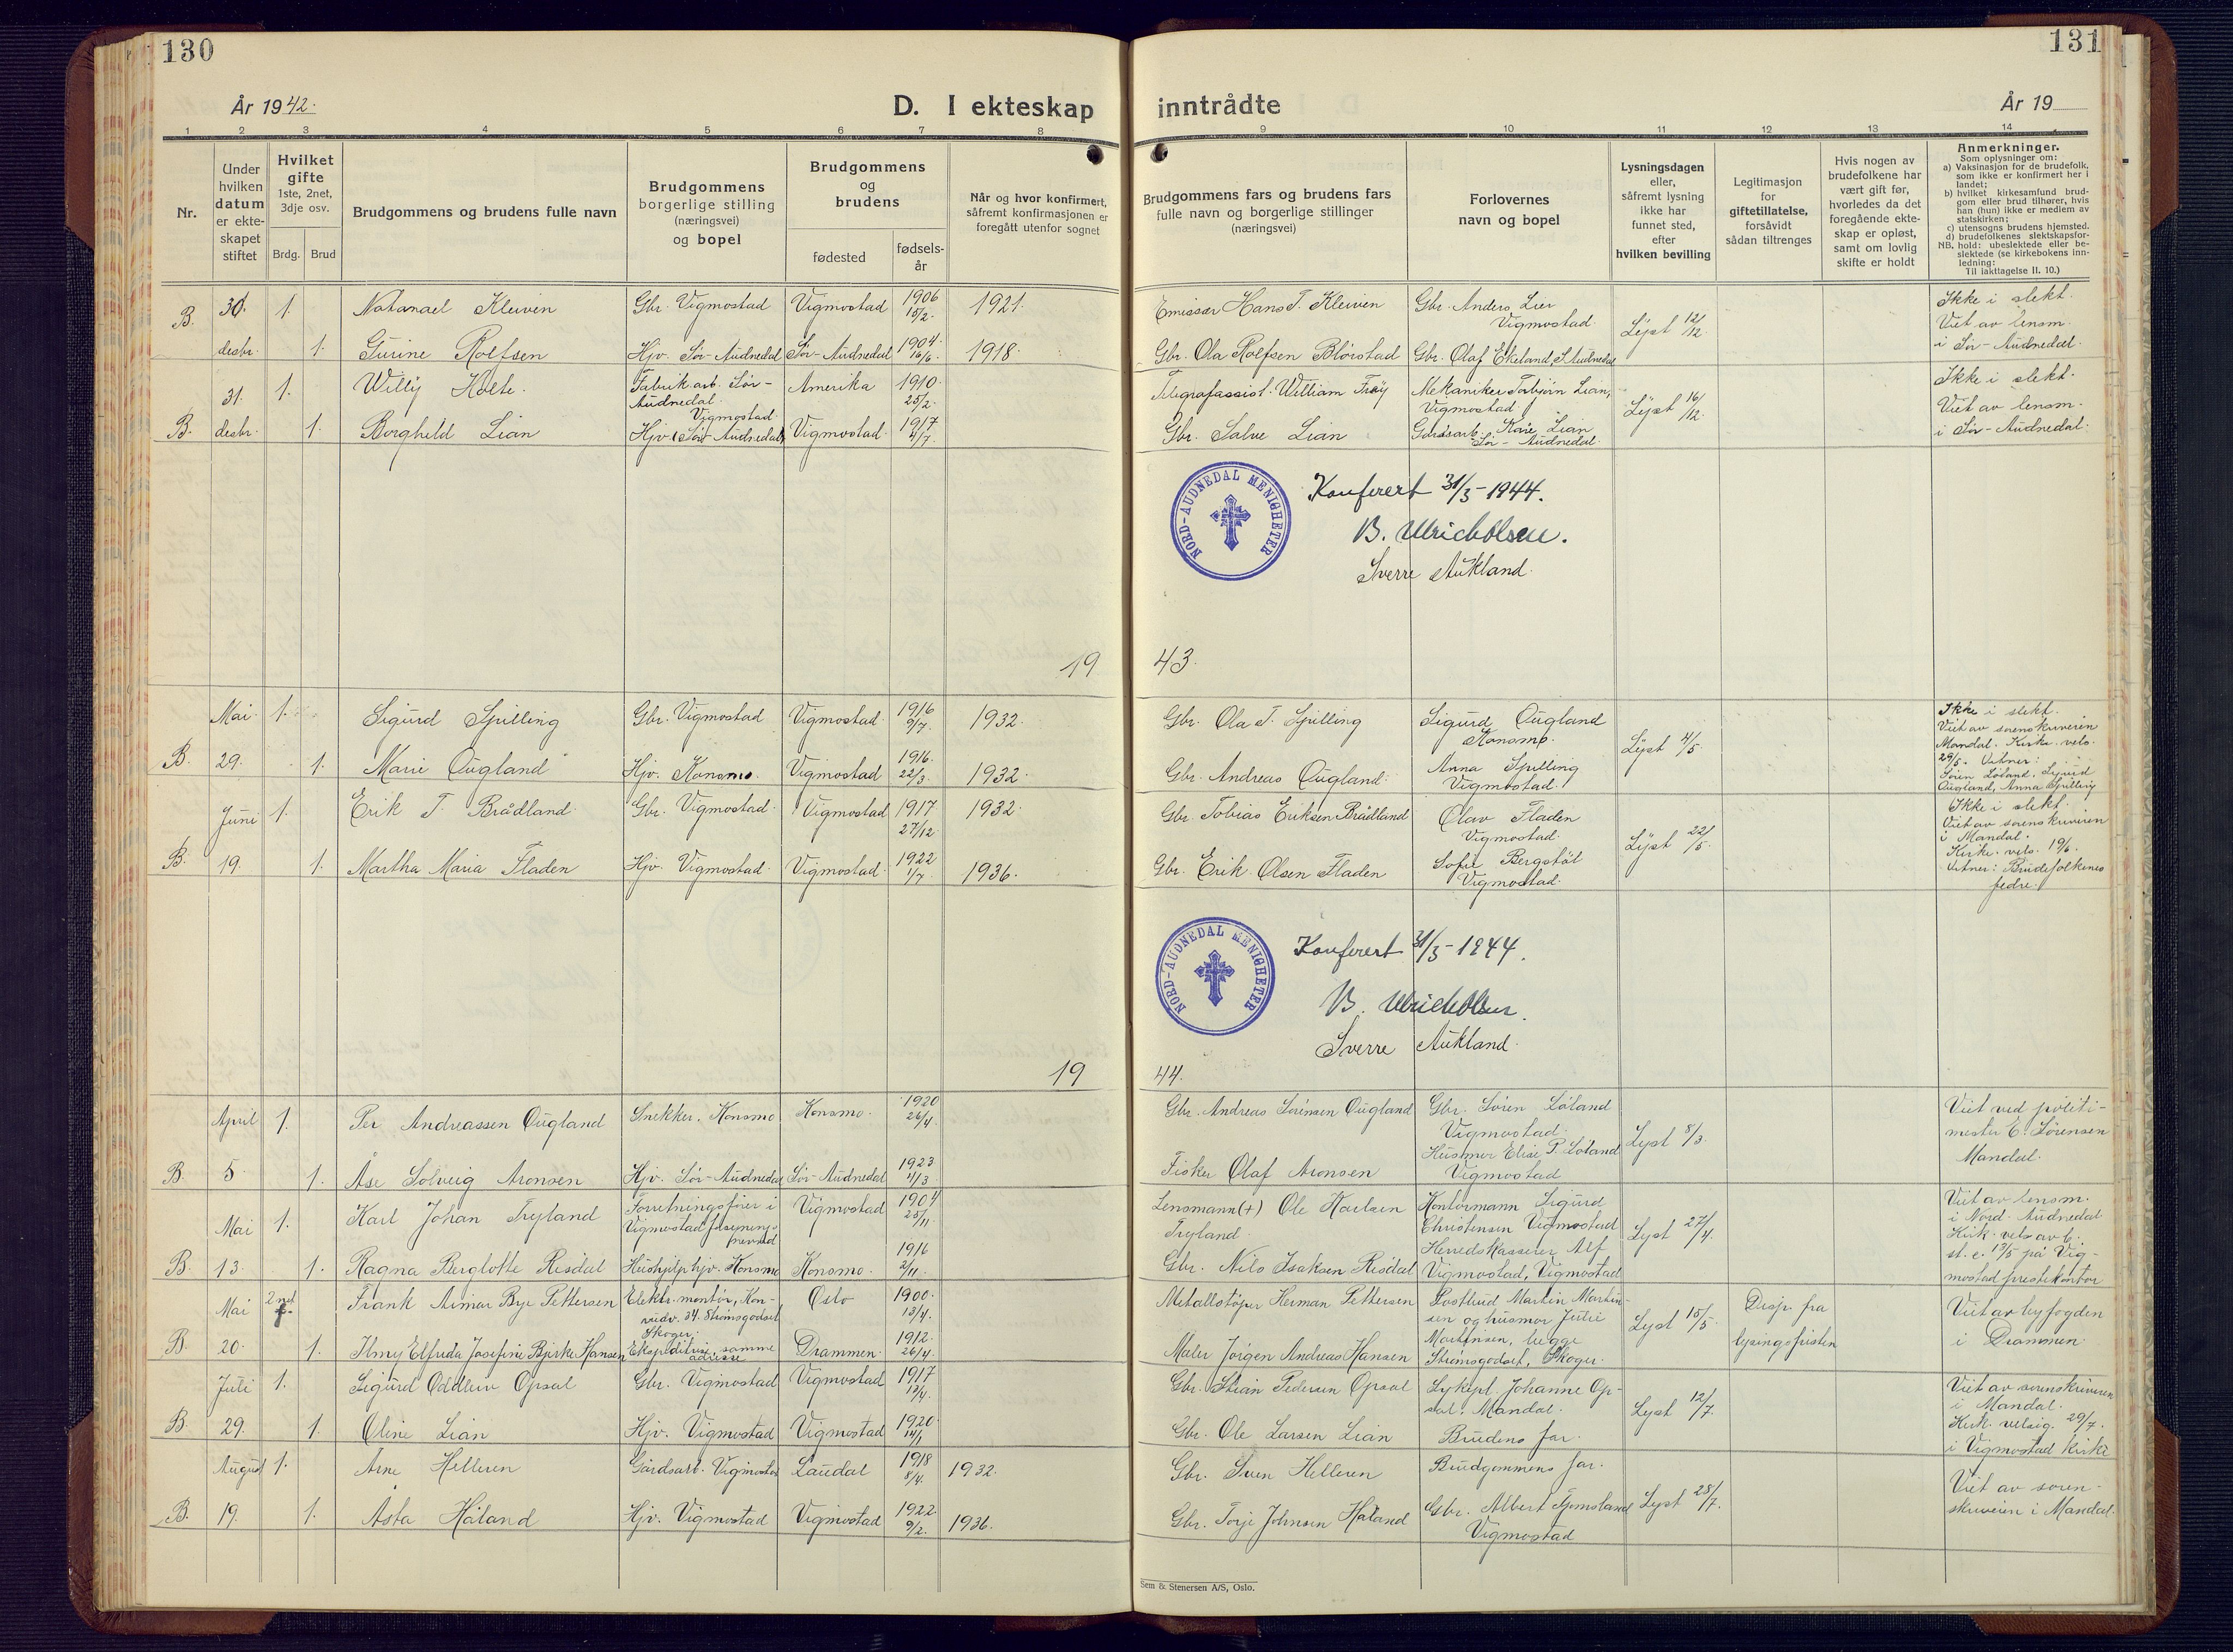 130
131
År 1942.
D. I ekteskap inntrådte
År 19
1 2 3 4 5 6 7 8 9 10 11 12 13 14
Nr.
Under hvilken datum er ekteskapet stiftet
Hvilket gifte
1ste, 2net, 3dje osv.
Brdg. Brud
Brudgommens og brudens fulle navn
Brudgommens borgerlige stilling (næringsvei) og bopel
Brudgommens og brudens
fødested
fødselsår
Når og hvor konfirmert, såfremt konfirmasjonen er foregått utenfor sognet
Brudgommens fars og brudens fars fulle navn og borgerlige stillinger (næringsvei)
Forlovernes navn og bopel
Lysningsdagen eller, såfremt lysning ikke har funnet sted, efter hvilken bevilling
Legitimasjon for giftetillatelse, forsåvidt sådan tiltrenges
Hvis nogen av brudefolkene har vært gift før, hvorledes da det foregående ekteskap er opløst, samt om lovlig skifte er holdt
Anmerkninger.
Som oplysninger om:
a) Vaksinasjon for de brudefolk, som ikke er konfirmert her i landet;
b) hvilket kirkesamfund brudgom eller brud tilhører, hvis han (hun) ikke er medlem av statskirken;
c) utensogns brudens hjemsted.
d) brudefolkenes slektskapsforhold: ubeslektede eller beslektede (se kirkebokens innledning:
NB. Til iakttagelse II. 10.)
B. 30. 1. Natanael Kleiven Gbr. Vigmostad Vigmostad 1906 15/2. 1921. Emissær Hans T. Kleiven Gbr. Anders Lier Vigmostad. Lyst 12/12. Ikke i slekt. Viet av lensm. i Sør-Audnedal.
desbr. 1. Gurine Rolfsen Hjv. Sør-Audnedal Sør-Audnedal 1904 16/6. 1918. Gbr. Ola Rolfsen Blörstad Gbr. Olaf Ekeland, S. Audnedal
31. 1. Willy Holte. Fabrik.arb. Sør-Audnedal. Amerika 1910. 25/2. Telegrafassist. William Frøy Mekaniker Torbjørn Lian, Vigmostad Lyst 16/12. Ikke i slekt. Viet av lensm. i Sør-Audnedal.
B. desbr. 1. Borghild Lian Hjv. Vigmostad (Sør-Audnedal) Vigmostad. 1917 4/7. Gbr. Salve Lian Gårdsarb. Kåre Lian Sør-Audnedal.
NORD-AUDNEDAL MENIGHETER
Konferert 31/3-1944.
B. Ulrichsen.
Sverre Aukland.
19 43.
Mai 1. Sigurd Spilling Gbr. Vigmostad Vigmostad. 1916 9/7. 1932. Gbr. Ola T. Spilling Sigurd Øugland Konsmo. Lyst 4/5. Ikke i slekt. Viet av sorenskriveren Mandal. Kirke. vels. 29/5. Vitner: Sören Löland, Sigurd Øugland, Anna Spilling
B. 29. 1. Marie Øugland Hjv. Konsmo. Vigmostad 1916. 22/3. 1932. Gbr. Andreas Øugland. Anna Spilling Vigmostad.
Juni 1. Erik T. Brådland. Gbr. Vigmostad. Vigmostad 1917 27/12 1932. Gbr. Tobias Eriksen Brådland Olav Fladen Vigmostad. Lyst 22/5. Ikke i slekt. Viet av sorenskriveren i Mandal. Kirke. vels. 19/6. Vitner: Brudefolkenes fedre.
B. 19. 1. Martha Maria Fladen Hjv. Vigmostad. Vigmostad. 1922 1/7. 1936. Gbr. Erik Olsen Fladen Sofie Bergstøl Vigmostad.
NORD-AUDNEDAL MENIGHETER
Konferert 31/3-1944.
B. Ulrichsen.
Sverre Aukland.
19 44.
April 1. Per Andreassen Øugland Snekker. Konsmo Konsmo. 1920 26/4 Gbr. Andreas Sørensen Øugland Gbr. Søren Løland Vigmostad. Lyst 8/3. Viet ved politimester E. Sörensen Mandal.
B. 5. 1. Åse Solveig Aronsen Hjv. Sør-Audnedal Sør-Audnedal 1923 11/3 Fisker Olaf Aronsen Husmor Elise P. Løland Vigmostad
Mai 1. Karl Johan Tryland Forretningsfører i Vigmostad forsyningsnevnd Vigmostad 1904 25/11. Lensmann(+) Ole Karlsen Tryland. Kontormann Sigurd Christensen Vigmostad Lyst 27/4. Viet av lensm. i Nord-Audnedal Kirk. vels av 13/5 på Vigmostad prestekontor
B. 13. 1. Ragna Berglotte Risdal Hushjelp hjv. Konsmo Konsmo. 1916 2/11. Gbr. Nils Isaksen Risdal Herredskasserer Alf Vigmostad, Vigmostad
Mai 2net Frank Armar Bye Pettersen Elektr. montør, 34. Strømsgodset Skoger. Oslo 1900. 13/4. Metallstøper Herman Pettersen Postbud Martin Martinsen og husmor Julie Martinsen, begge Strømsgodset, Skoger. Lyst 15/5. Disp. fra lysingsfristen Viet av byfogden i Drammen.
B. 20. 1. Ilmy Elfrida Josefine Bjerke Hansen Ekspeditrise, samme adresse Drammen. 1912. 26/4. Maler Jörgen Andreas Hansen
Juli 1. Sigurd Oddleiv Opsal Gbr. Vigmostad Vigmostad 1917 13/4. Gbr. Stian Pedersen Opsal Sykepl. Johanne Opsal. Mandal. Lyst 12/7. Viet av sorenskriveren i Mandal. Kirk. velsig. 29/7. i Vigmostad kirke
B. 29. 1. Oline Lian Hjv. Vigmostad Vigmostad 1920. 14/1 Gbr. Ole Larsen Lian Brudens far.
August 1. Arne Helleren Gårdsarb. Vigmostad Laudal 1918 8/4. 1932. Gbr. Sven Helleren Brudgommens far. Lyst 25/7. Viet av sorenskriveren i Mandal.
B. 19. 1. Asta Håland Hjv. Vigmostad Vigmostad 1922 9/2. 1936. Gbr. Torje Johnsen Håland Gbr. Albert Tjomsland Vigmostad
Sem & Stenersen A/S, Oslo.